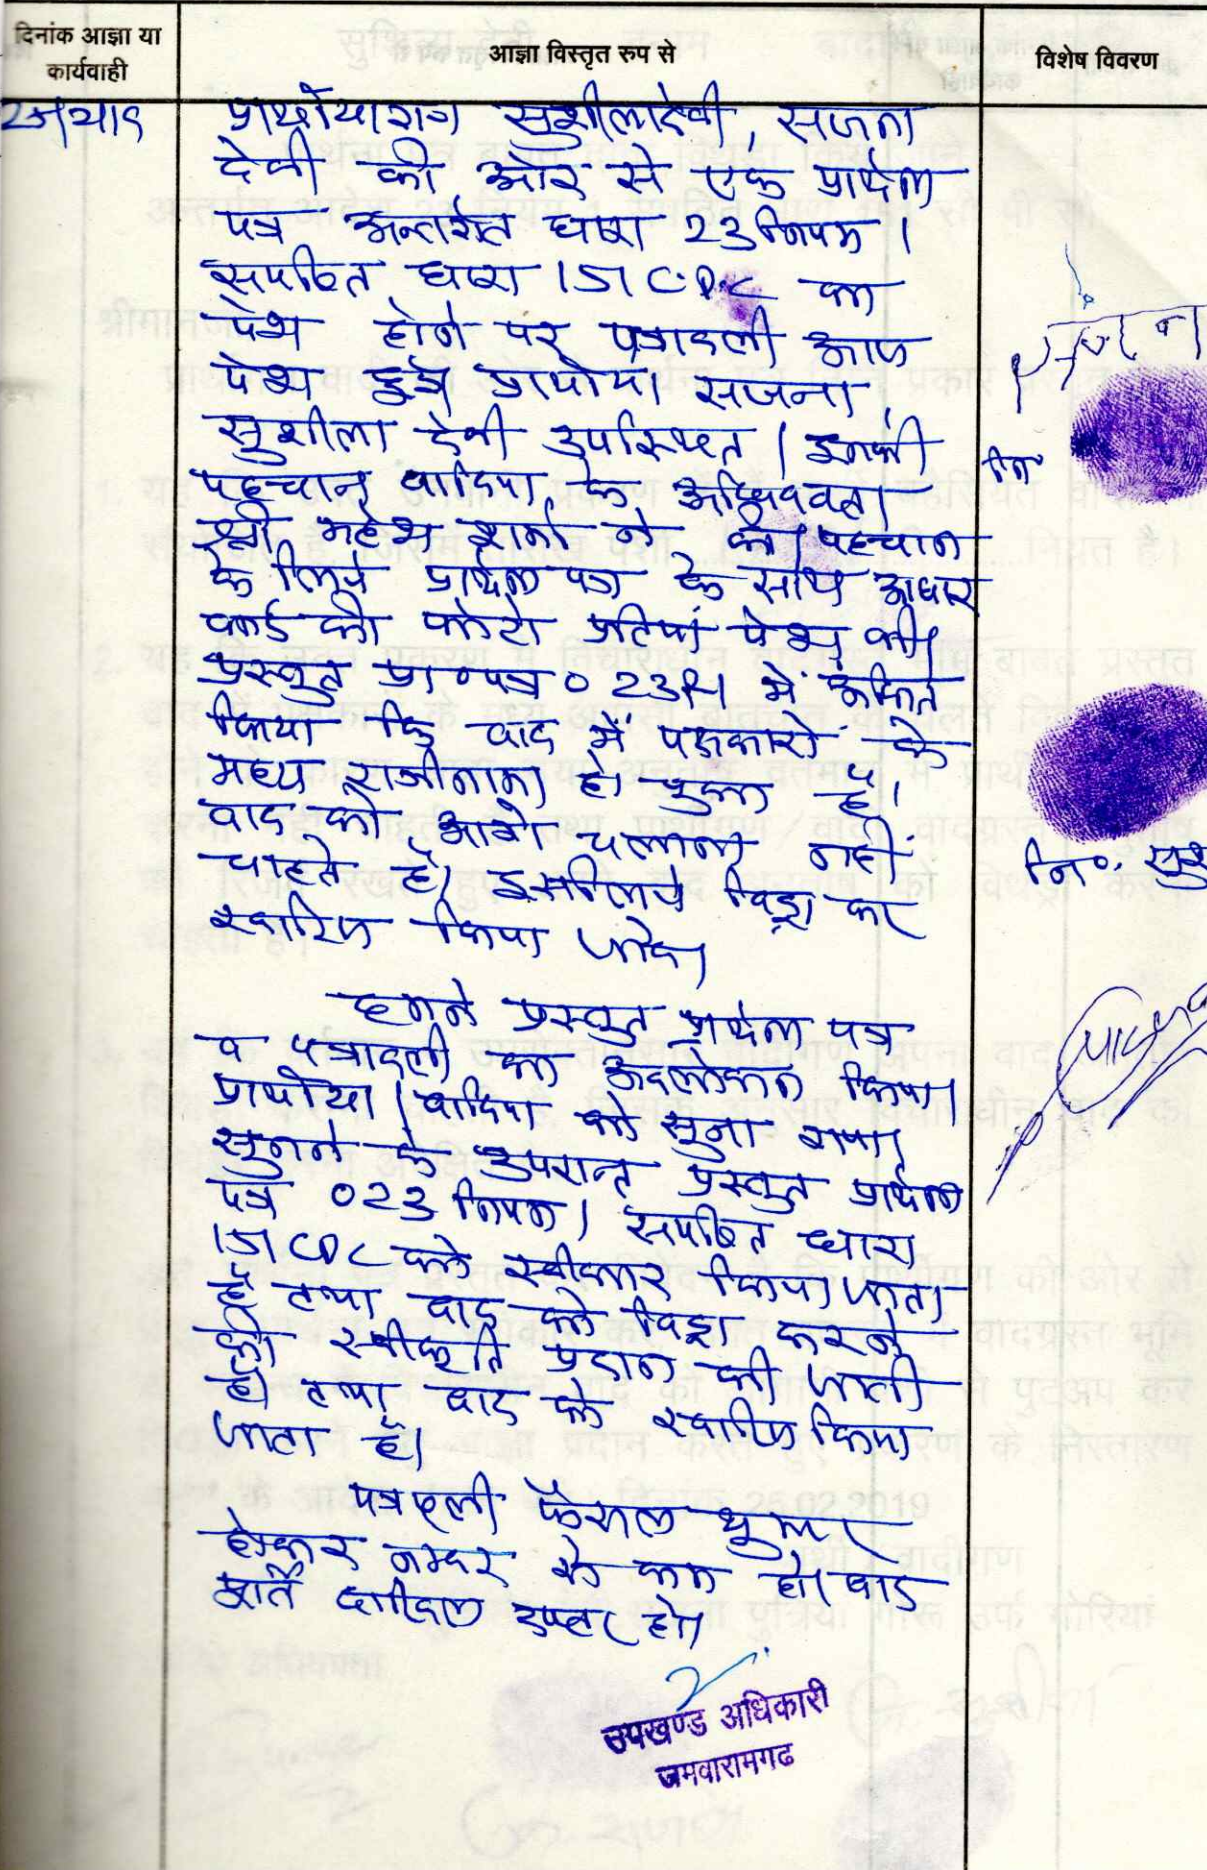 दिनांक आज्ञा या
कार्यवाही
आज्ञा विस्तृत रुप से
विशेष विवरण
प्रार्थीयागण सुशीलादेवी, सजना
देवी की ओर से एक प्रार्थना
पत्र अन्तर्गत धारा 23 नियम 1
सपठित धारा 151 C.P.C का
पेश होने पर पत्रावली आज
पेश हुई प्रार्थीया सजना,
सुशीला देवी उपस्थित। इनकी
पहचान वादिया के अधिवक्ता
श्री महेश शर्मा ने की। पहचान
के लिये प्रार्थना पत्र के साथ आधार
कार्ड की फोटो प्रतियां पेश की।
प्रस्तुत प्रा०पत्र 023R1 में अंकित
किया कि वाद में पक्षकारो के
मध्य राजीनामा हो चुका है।
वाद को आगे चलाना नही
चाहते है। इसलिये विड्रा कर
खारिज किया जावे।
हमने प्रस्तुत प्रार्थना पत्र
व पत्रावली का अवलोकन किया।
प्रार्थीया / वादिया को सुना गया।
सुनने के उपरान्त प्रस्तुत प्रार्थना
पत्र 023 नियम 1 सपठित धारा
151 CPC को स्वीकार किया जाता
है तथा वाद को विड्रा करने
की स्वीकृति प्रदान की जाती
है। तथा वाद को खारिज किया
जाता है।
पत्रावली फैसल शुमार
होकर नम्बर से कम हो। बाद
दाखिल दफ्तर हो।
उपखण्ड अधिकारी
जमवारामगढ
सजना
नि०
नि०. सुश